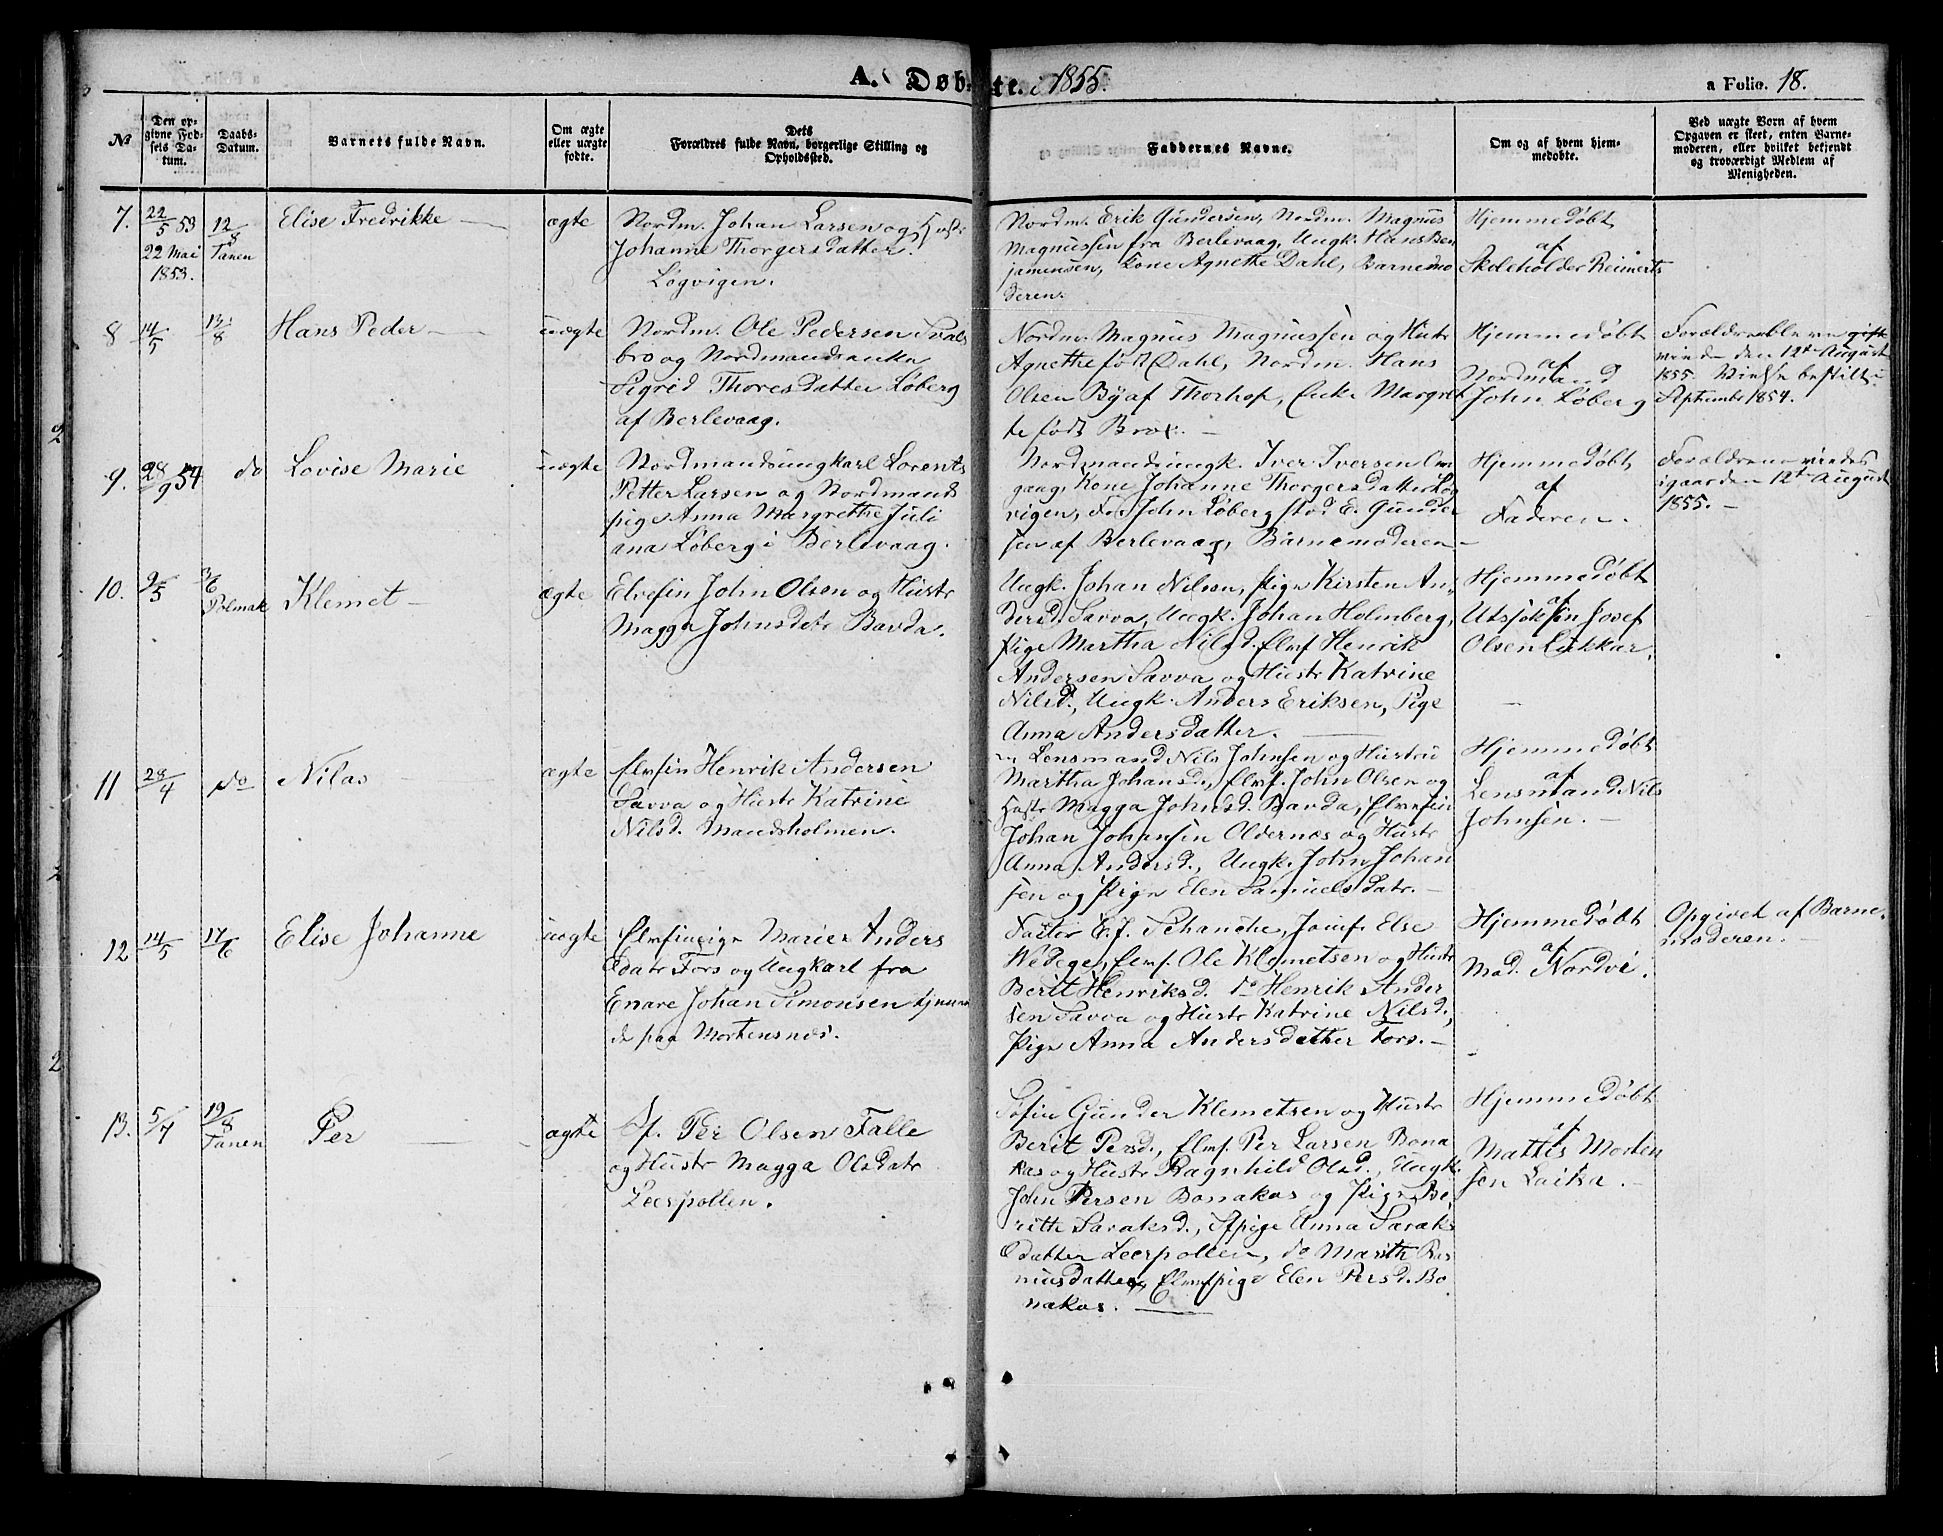 A. Døbte. 1855.
a Folio. 18.
№
Den opgivne Fødsels Datum.
Daabs-Datum.
Varnets fulde Navn.
Om ægte eller uægte fødte.
Dets Forældres fulde Navn, borgerlige Stilling og Opholdssted.
Faddernes Navne.
Om og af hvem hjemmedøbte.
Ved uægte Børn af hvem Opgaven er skeet, enten Barnemoderen, eller hvilket bekjendt og troværdigt Medlem af Menigheden.
7.
22/5 53
22 Mai
1853.
12/8
Tanen
Elise Fredrikke
ægte
Nordm. Johan Larsen og Hustr
Johanne Thorgersdatter.
Løgvigen.
Nordm. Erik Gundersen, Nordm. Magnus
Magnussen fra Berlevaag, Ungk. Hans Ben
jamensen, Kone Agnethe Dahl, Barnemo
deren.
Hjemmedøbt
af
Skoleholder Reimerts
8
14/5
13/8
Hans Peder
uægte
Nordm. Ole Pedersen Svals
bro og Nordmandsenke
Sigrid Thoresdatter Løberg
af Berlevaag.
Nordm. Magnus Magnussen og Hustr
Agnethe født Dahl, Nordm. Hans
Olsen By af Thorhop, Enke Margret
te født Brox.
Hjemmedøbt
af
Nordmand
John Løberg
Forældrene bleve gift
viede den 12te August
1855. Vielse bestilt i
Septembr 1854.
9.
28/9 54
do
Lovise Marie
uægte
Nordmandsungkarl Lorents
Petter Larsen og Nordmands
pige Anna Margrethe Juli
ana Løberg i Berlevaag.
Nordmandsungk. Iver Iversen
gaag, Kone Johanne Thorgersdatter Løg
vigen, For John Løberg stod E. Gunder
sen af Berlevaag, Barnemoderen
Hjemmedøbt
af
Faderen.
Forældrene viedes
igaar den 12te August
1855.
10.
9/5
3/6
Polmak
Klemet
ægte
Elvefin John Olsen og Hustr
Magga Johnsdatr Bavda.
Ungk. Johan Nilsen, Pige Kirsten An
dersd. Savva, Ungk. Johan Holmberg,
Pige Martha Nilsd. Elvf. Henrik
Andersen Savva og Hustr Katrine
Nilsd., Ungk. Anders Eriksen, Pige
Anna Andersdatter.
Hjemmedøbt
af
Utsjokfin Josef
Olsen Lukkar.
11
28/4
do
Nilas
ægte
Elvefin Henrik Andersen
Savva og Hustr Katrine
Nilsd. Mandsholmen.
Lensmand Nils Johnsen og Hustru
Martha Johansd., Elvf. John Olsen og
Hustr Magga Johnsd. Bavda, Elvefin
Johan Johansen Oldernæs og Hustr
Anna Andersd., Ungk. John Johan
sen og Pige Elen Samuelsdatr.
Hjemmedøbt
af
Lensmand Nils
Johnsen.
12
14/5
17/6
Elise Johanne
uægte
Elvefinpige Marie Anders
datr Fors og Ungkarl fra
Enare Johan Simonsen tjenen
de paa Mortensnæs.
Factor E. J. Schanche, Jomf. Else
Wedege, Elvf. Ole Klemetsen og Hustr
Berit Henriksd. do Henrik Ander
sen Savva og Hustr Katrine Nilsd.,
Pige Anna Andersdatter Fors.
Hjemmedøbt
af
Mad. Nordvi.
Opgivet af Barne
moderen.
13.
5/4
19/8
Tanen
Per
ægte
Sf. Per Olsen Falle
og Hustr Magga Olsdatr
Leerpollen.
Søfin Gunder Klemetsen og Hustr
Berit Persd., Elvf. Per Larsen Bona
kas og Hustr Ragnhild Olsd., Ungk.
John Persen Bonakas og Pige Be
rithe Saraksd., Sfpige Anna Saraks
datter Leerpollen, do Marith Ras
musdatter, Elvefpige Elen Persd. Bo
nakas.
Hjemmedøbt
af
Mattis Morten
sen Laika.